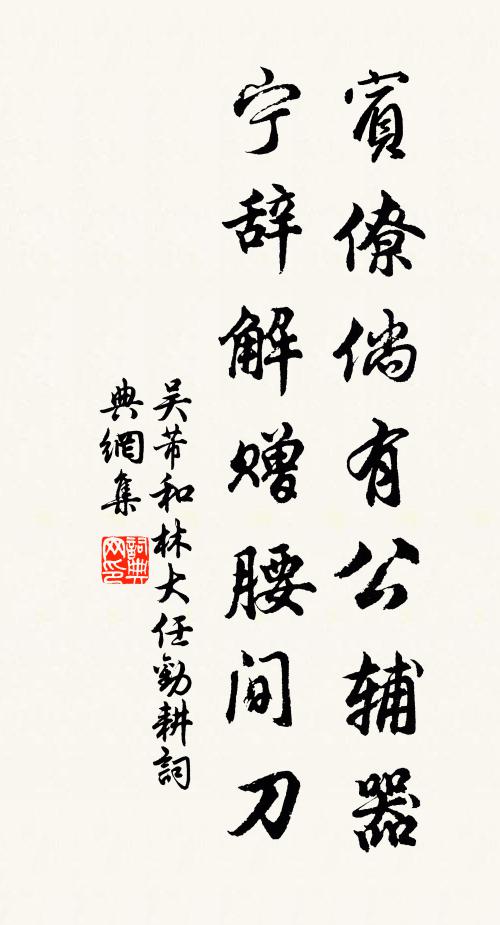 賓僚倘有公辅器
宁辞解赠腰间刀
吴芾和林大任勸耕詞
典網集
詞典网印